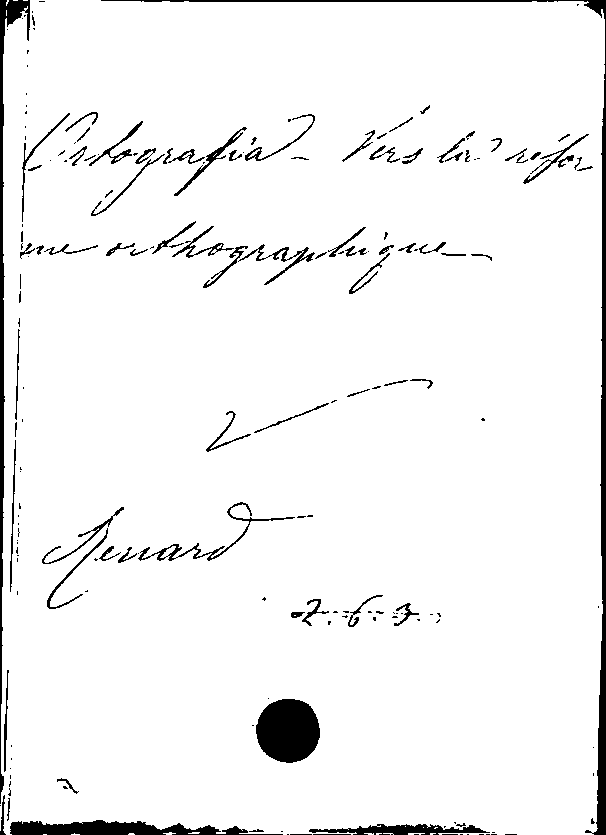 Ortografia - Vers la réfor
me orthographique
Renard
2.6.3.